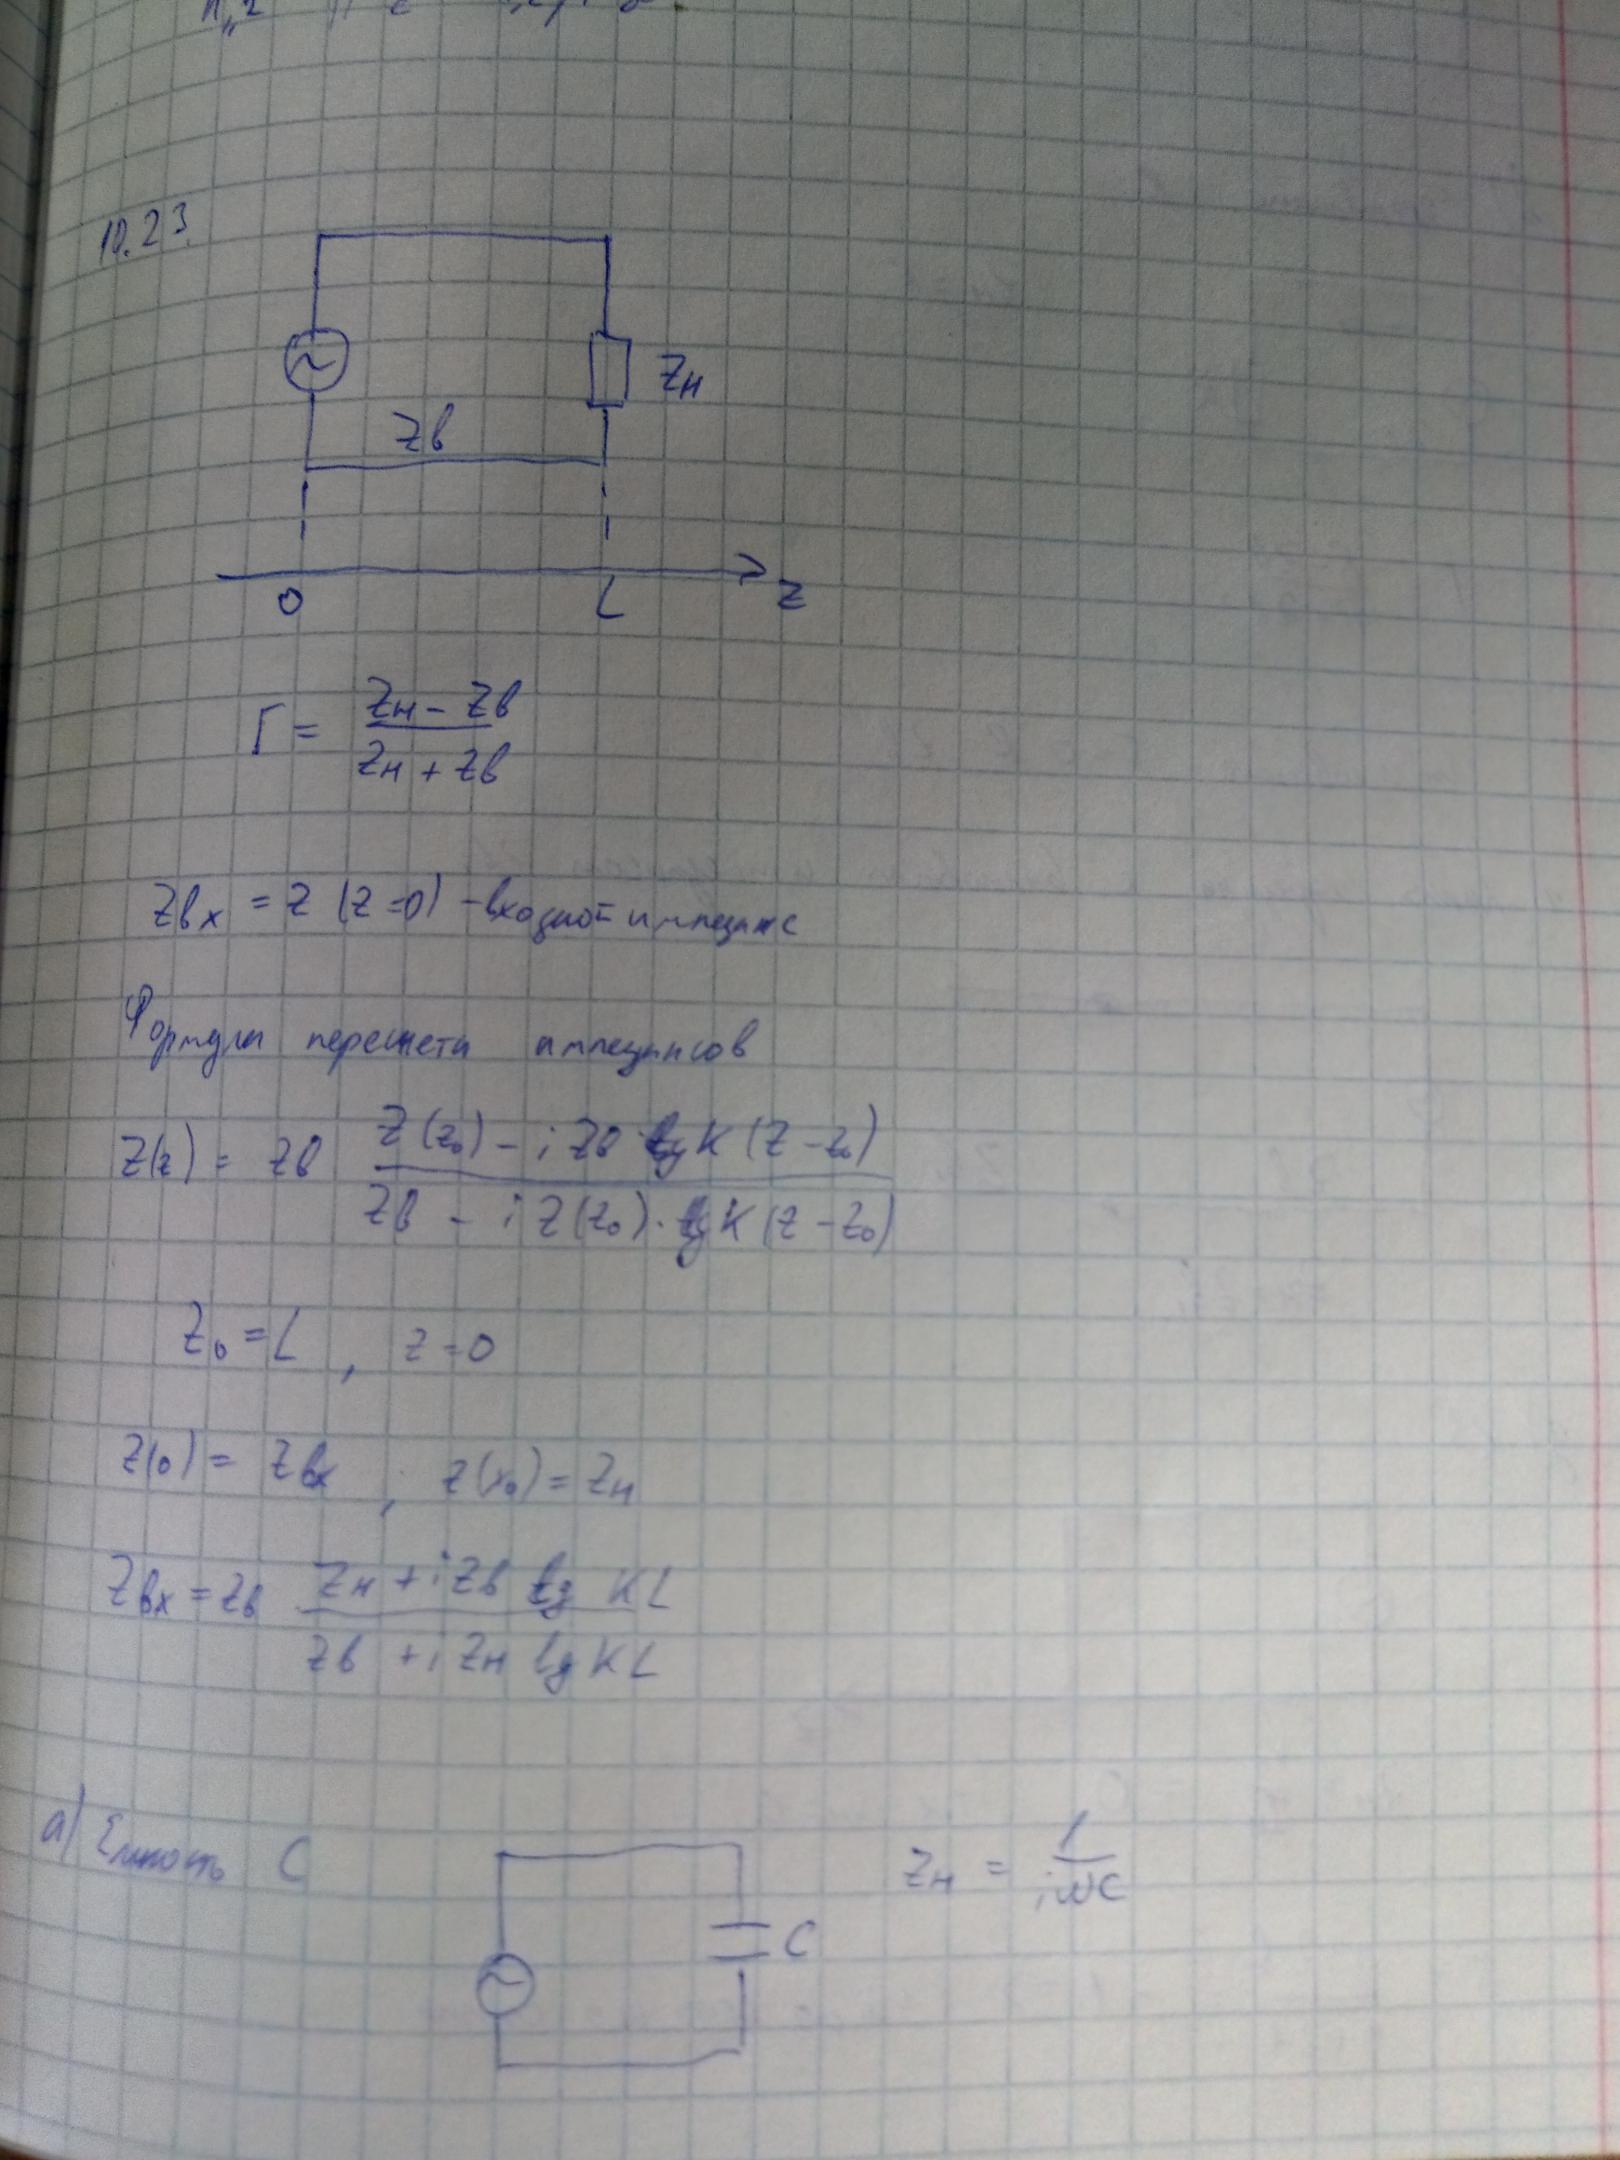 10.23.
Zн
Zв
0 L z
Г = (Zн - Zв) / (Zн + Zв)
Zвх = Z (z=0) - входной импеданс
Формулы пересчета импедансов
Z(z) = Zв (Z(z₀) - i Zв tg k (z - z₀)) / (Zв - i Z(z₀) · tg k (z - z₀))
z₀ = L , z = 0
Z(0) = Zвх , Z(z₀) = Zн
Zвх = Zв (Zн + i Zв tg kL) / (Zв + i Zн tg kL)
а) Емкость C
Zн = 1 / iωC
C